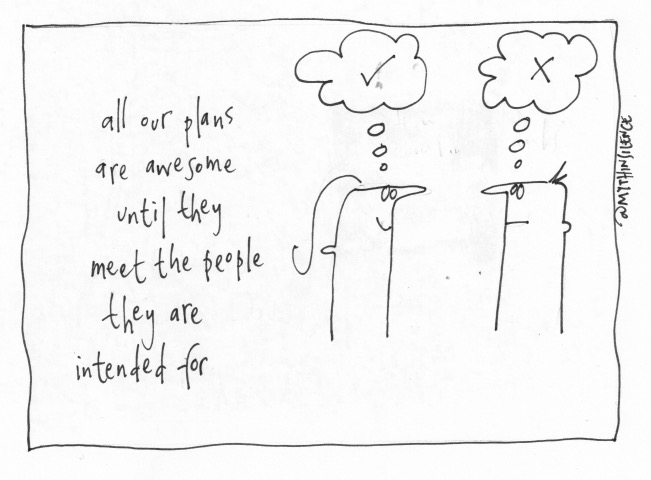 all our plans
are awesome
until they
meet the people
they are
intended for
@MYTHINSILENCE